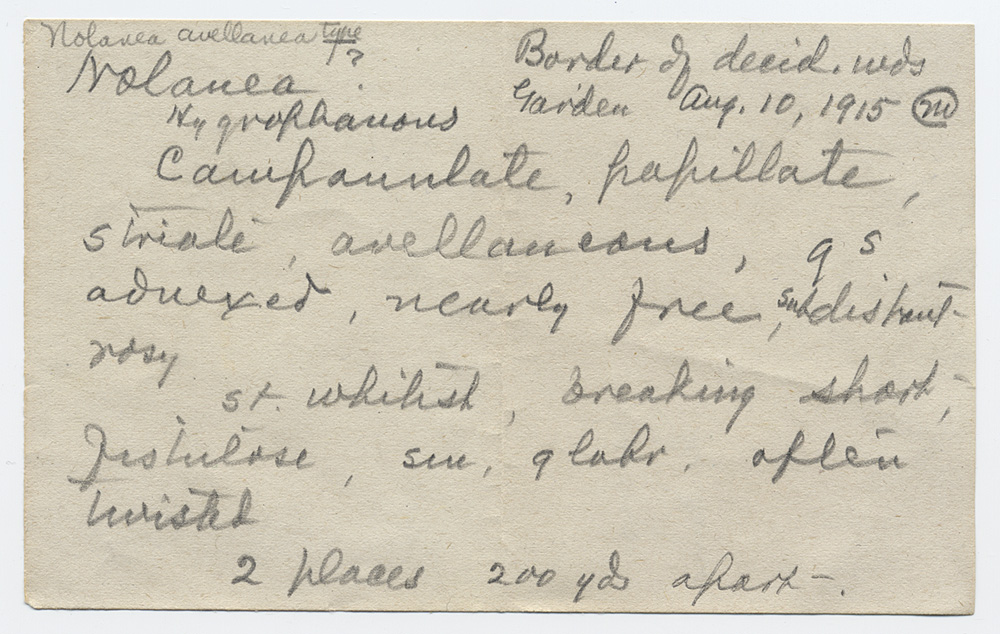 Nolanea avellanea type
?
Nolanea
Border of decid. wds
Garden Aug. 10, 1915 m
Hygrophanous
Campanulate, papillate,
striate, avellaneous, gs
adnexed, nearly free, subdistant
rosy
st. whitish, breaking short,
fistulose, sm, glabr. often
twisted
2 places 200 yds apart.